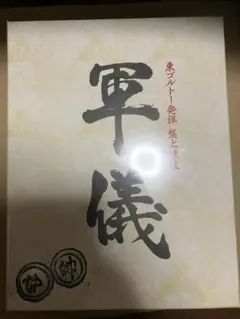 東ゴルトー発祥 盤上遊戯
軍儀
帥